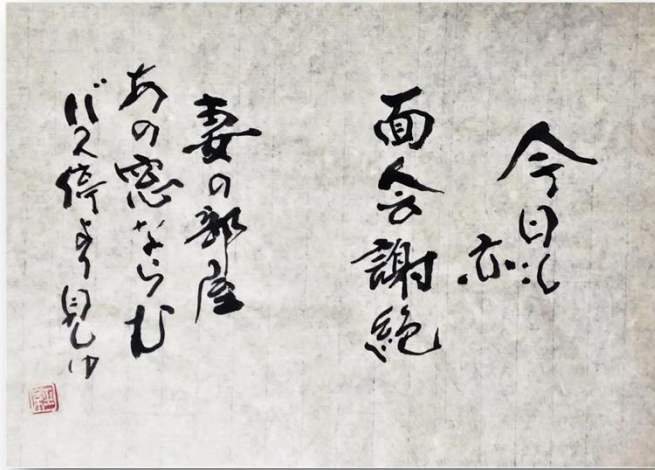 今日も
亦
面会謝絶
妻の部屋
あの窓ならむ
バス停より見ゆ